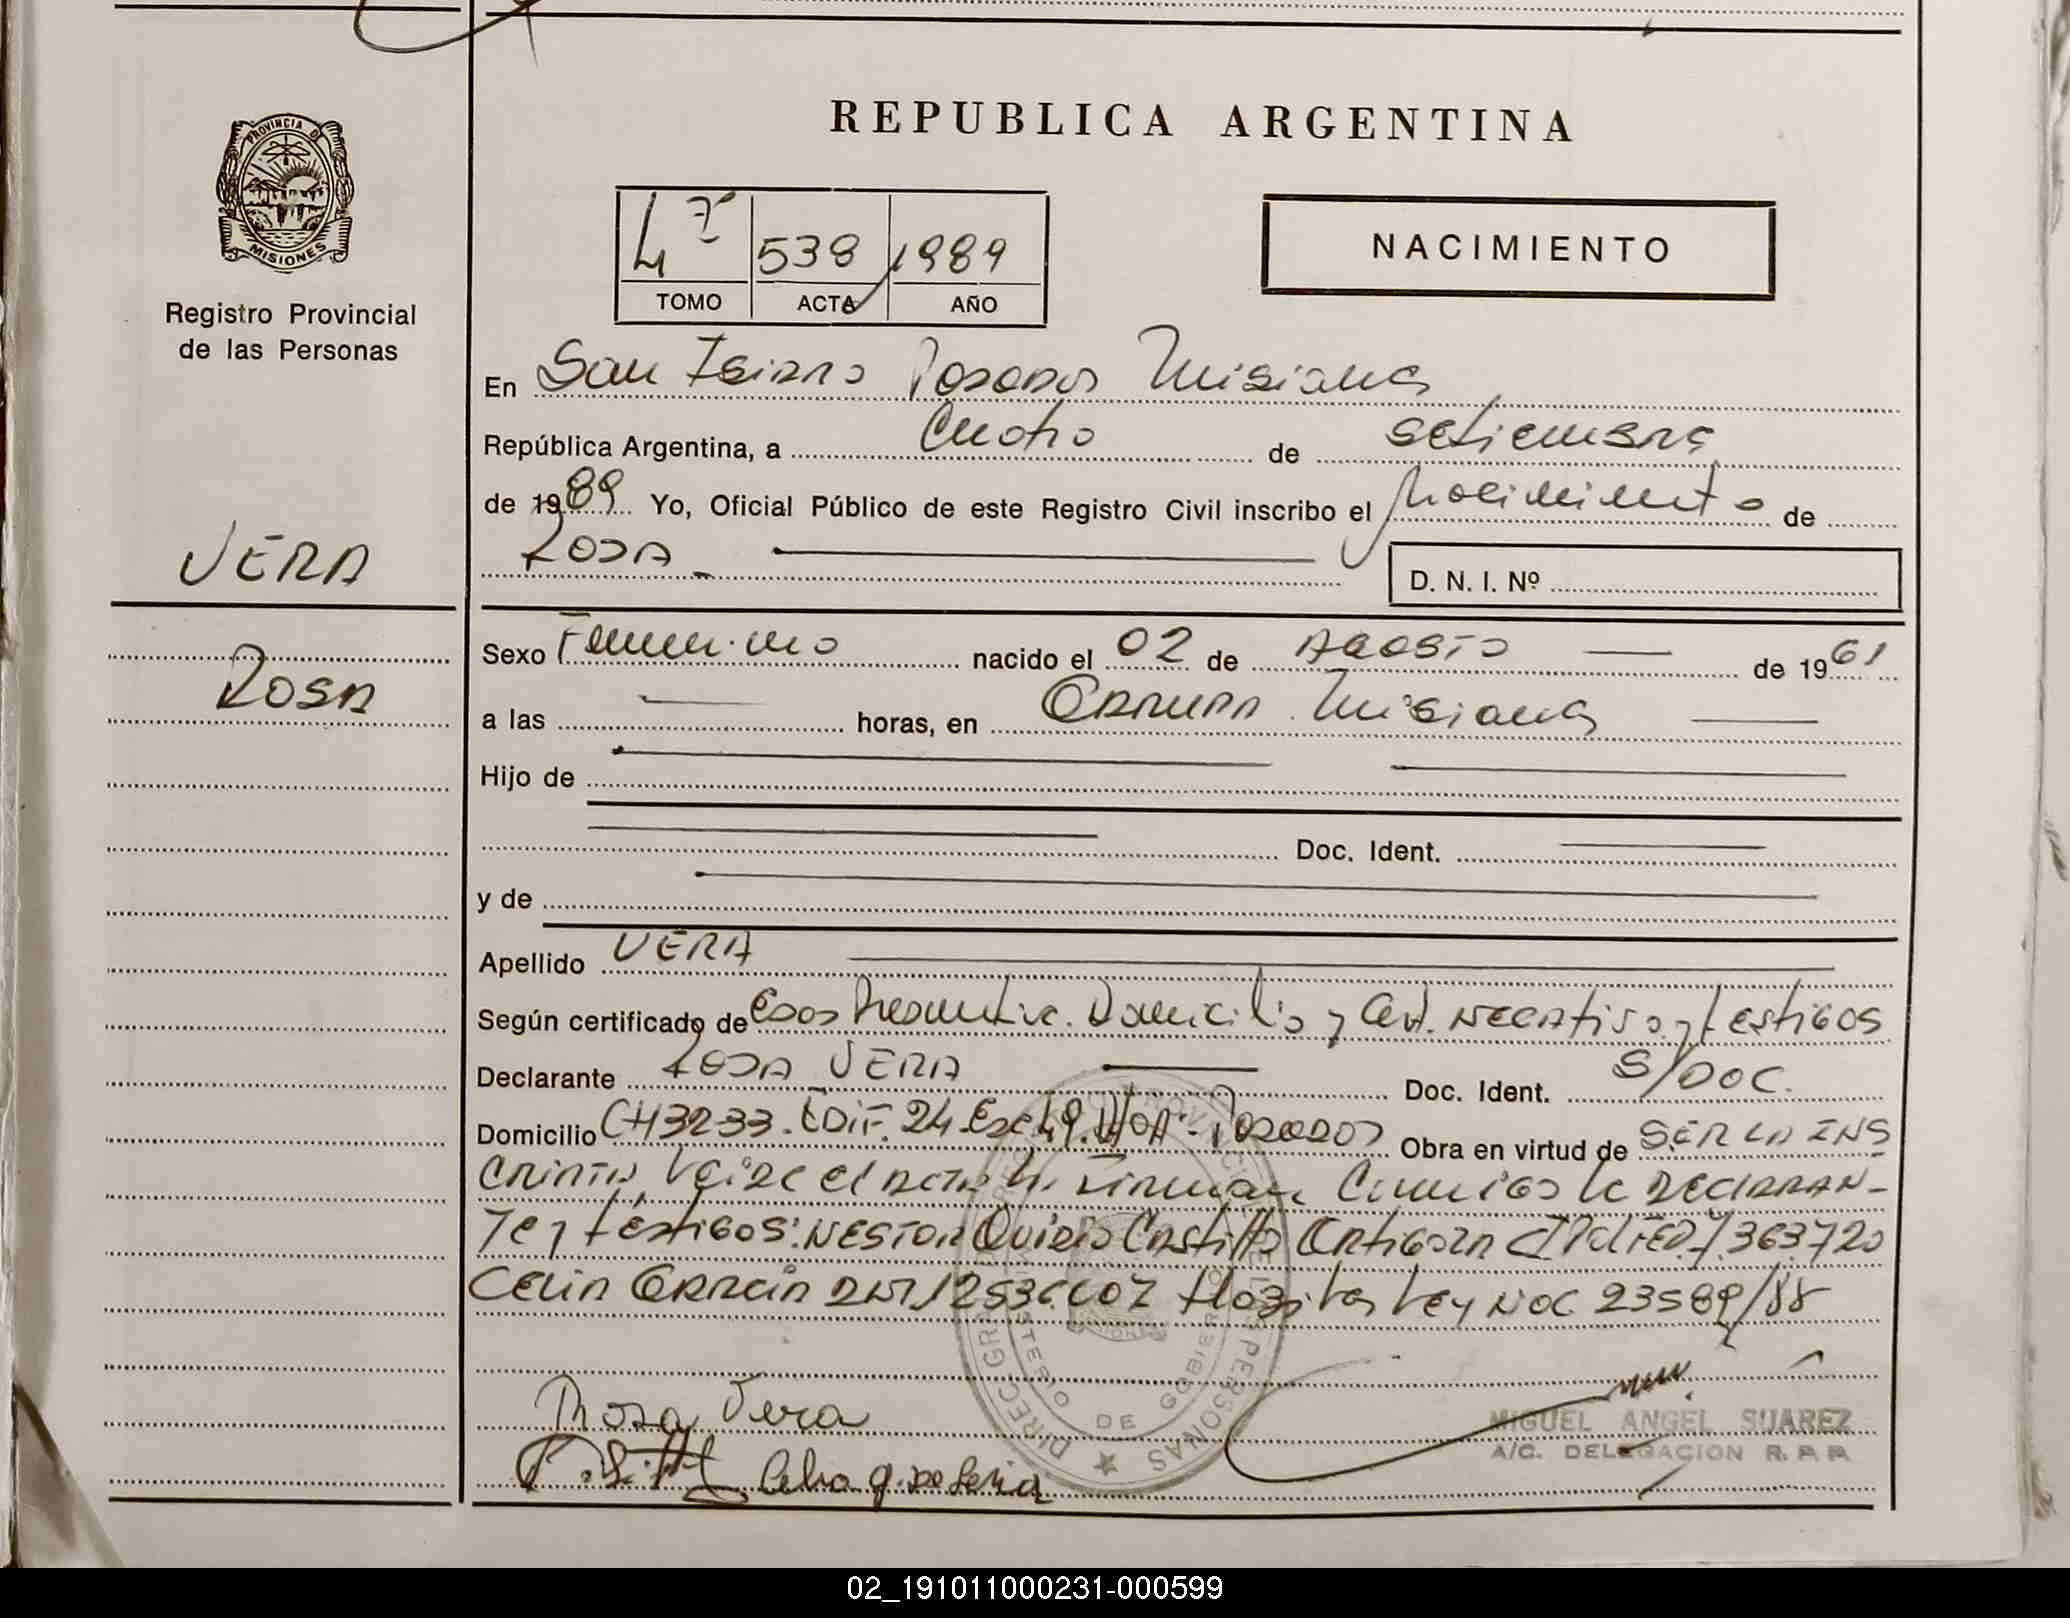 REPUBLICA ARGENTINA
PROVINCIA D
MISIONES
Registro Provincial
de las Personas
4º 538 1989
TOMO ACTA AÑO
NACIMIENTO
En San Isidro Posadas Misiones
República Argentina, a Cuatro de setiembre
de 1989 Yo, Oficial Público de este Registro Civil inscribo el Nacimiento de
ROSA
D. N. I. Nº
VERA
ROSA
Sexo Femenino nacido el 02 de AGOSTO de 1961
a las horas, en Misiones
Hijo de
Doc. Ident.
y de
Apellido VERA
Según certificado de Edad Presuntiva. Domicilio y Cert. NEGATIVO y testigos
Declarante ROSA VERA Doc. Ident. S/DOC.
Domicilio CH 32-33. EDIF. 24 Esc 49. Posadas Obra en virtud de SER LA INS
CRIPTA, Leida el acta la Firman Conmigo la DECLARAN-
TE y testigos: NESTOR Ovidio Castillo 7.363.720
Celia GARCIA Ley NAC 23589/88
Rosa Vera
Celia g. de
MIGUEL ANGEL SUAREZ
A/C. DELEGACION R. P. P.
02_191011000231-000599